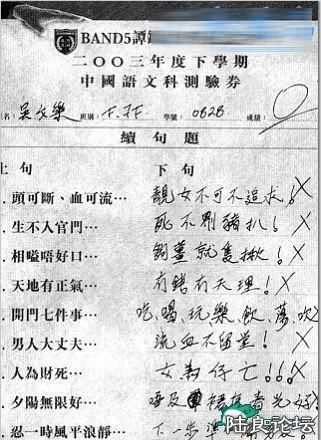 BAND5譚
二〇〇三年度下學期
中國語文科測驗券
名: 吳文樂 班別: F. 學號: 0626 成績: 0
續句題
上句 下句
. 頭可斷、血可流… 靚女不可不追求! X
. 生不入官門… 死不劏豬扒! X
. 相嗌唔好口… 就隻揪! X
. 天地有正氣… 有錢有天理! X
. 開門七件事… 吃、喝、玩、樂、飲、蕩、吹
. 男人大丈夫… 流血不留堂! X
. 人為財死… 女為仔亡!!! X
. 夕陽無限好…
. 忍一時風平浪靜… 下一步
陆良论坛